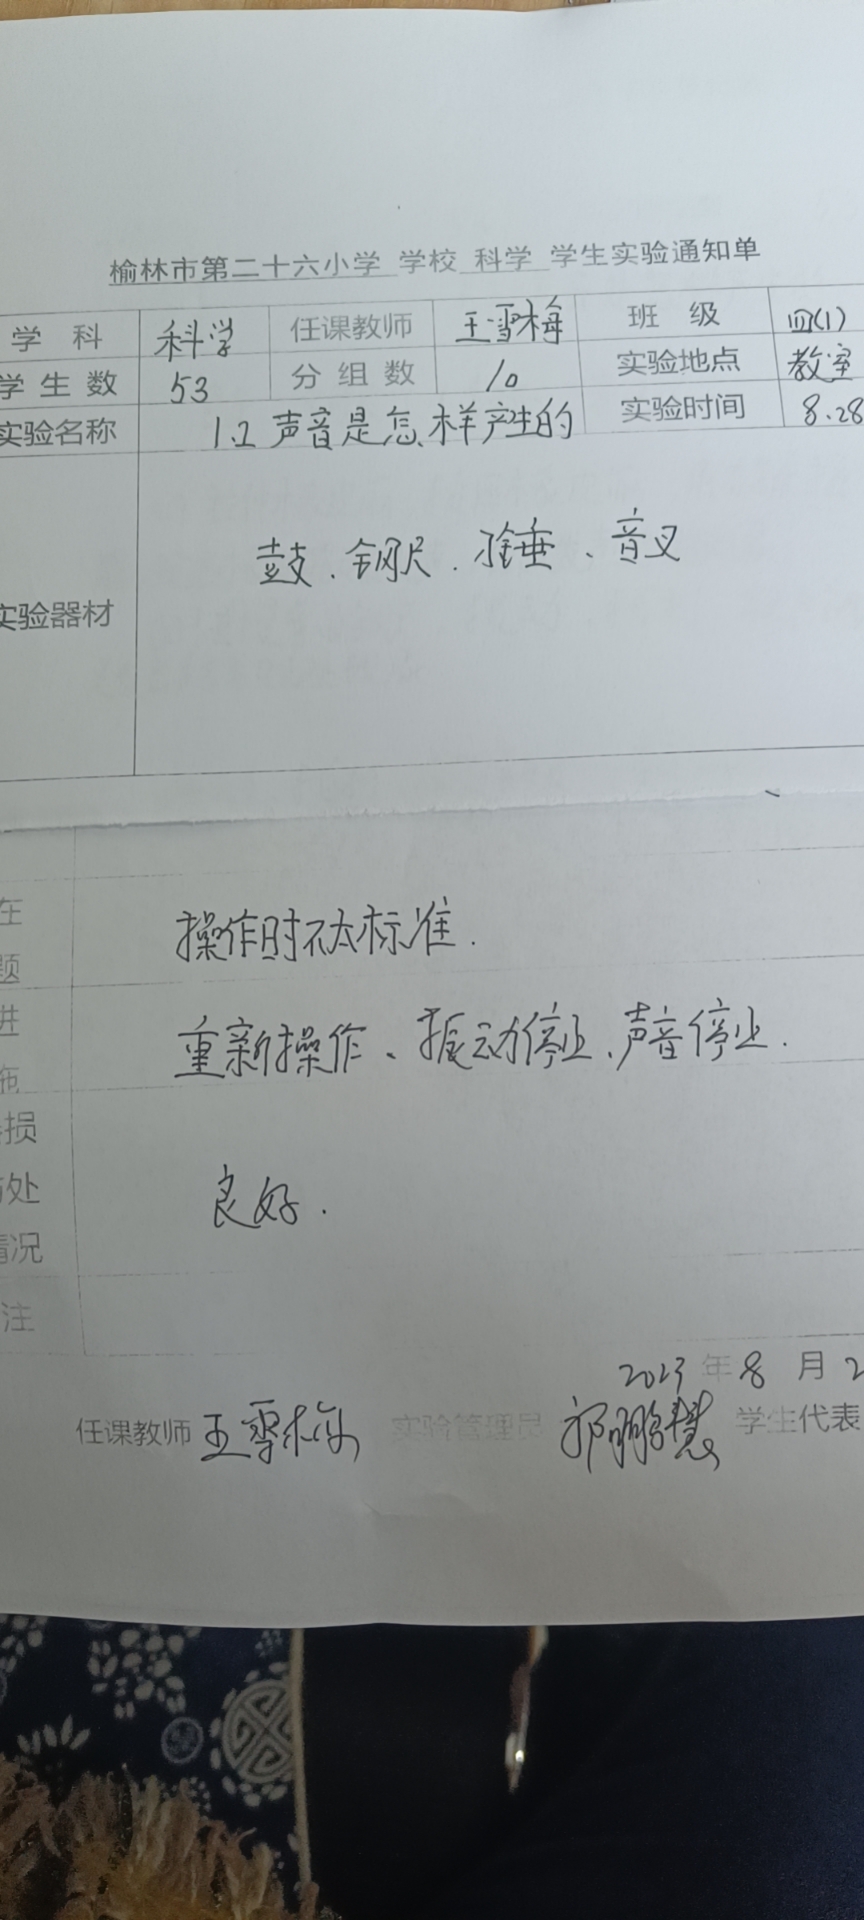 榆林市第二十六小学 学校 科学 学生实验通知单
学 科 科学 任课教师 王雪梅 班 级 四(1)
学生数 53 分组数 10 实验地点 教室
实验名称 1.2 声音是怎样产生的 实验时间 8.28
鼓、钢尺、橡锤、音叉
实验器材
在
操作时不太标准.
题
进
重新操作、振动停止、声音停止.
施
损
处
良好.
情况
注
2023 年 8 月 2
任课教师 王雪梅 实验管理员 郭鹏慧 学生代表